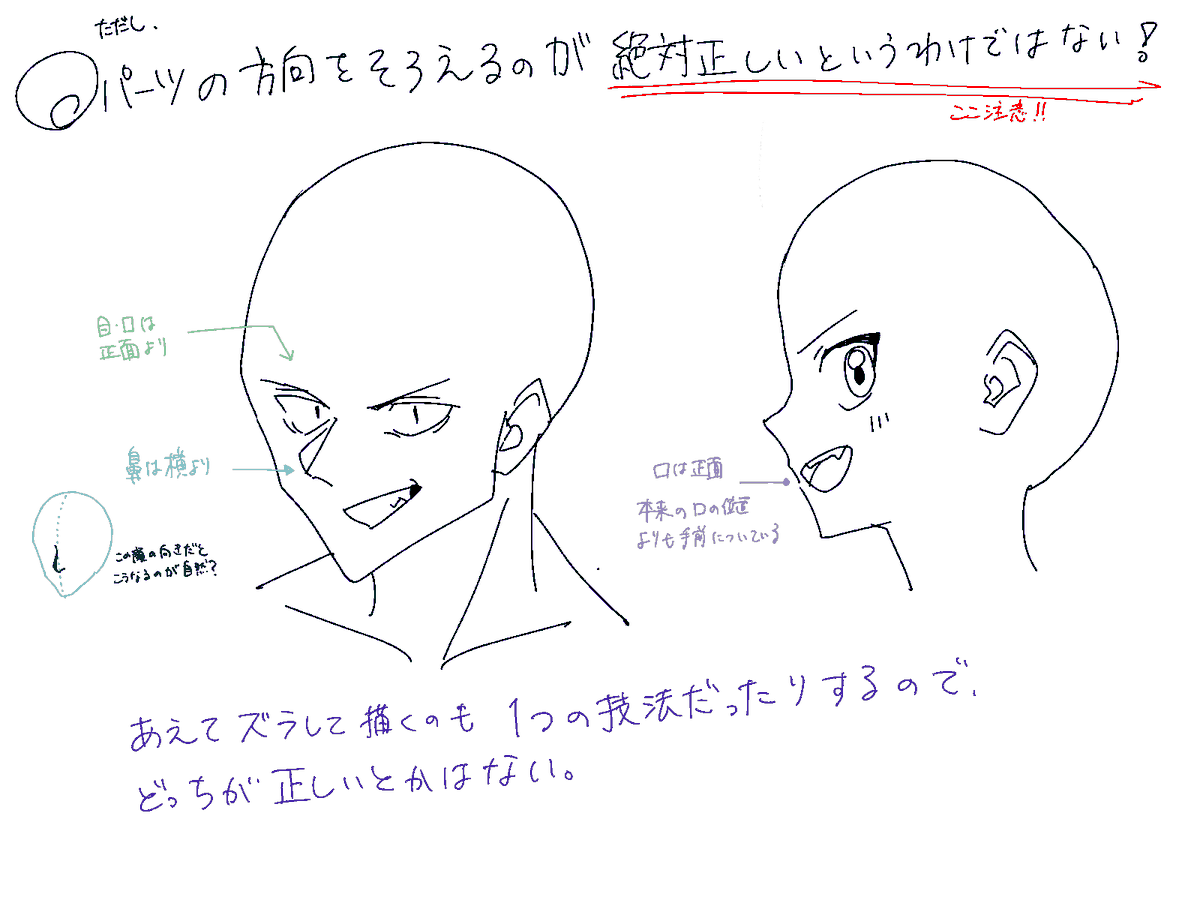 ただし、
パーツの方向をそろえるのが絶対正しいというわけではない!
ここ注意!!
目・口は
正面より
鼻は横より
この顔の向きだと
こうなるのが自然?
口は正面
本来の口の位置
よりも手前についている
あえてズラして描くのも1つの技法だったりするので、
どっちが正しいとかはない。